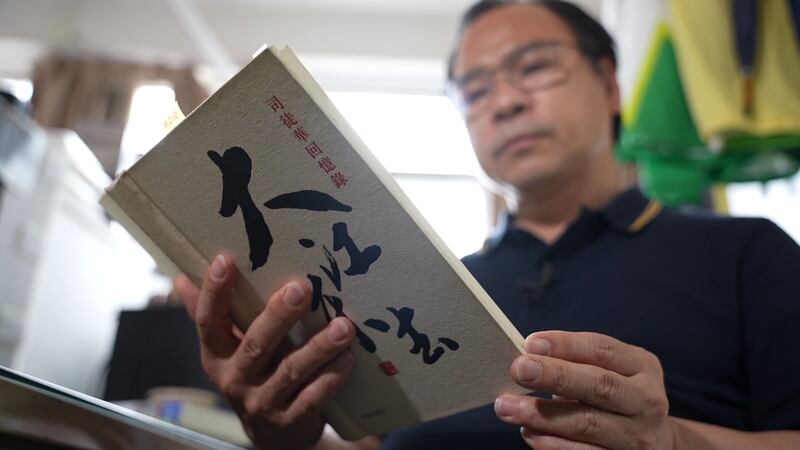 司徒華回憶錄
大江東去